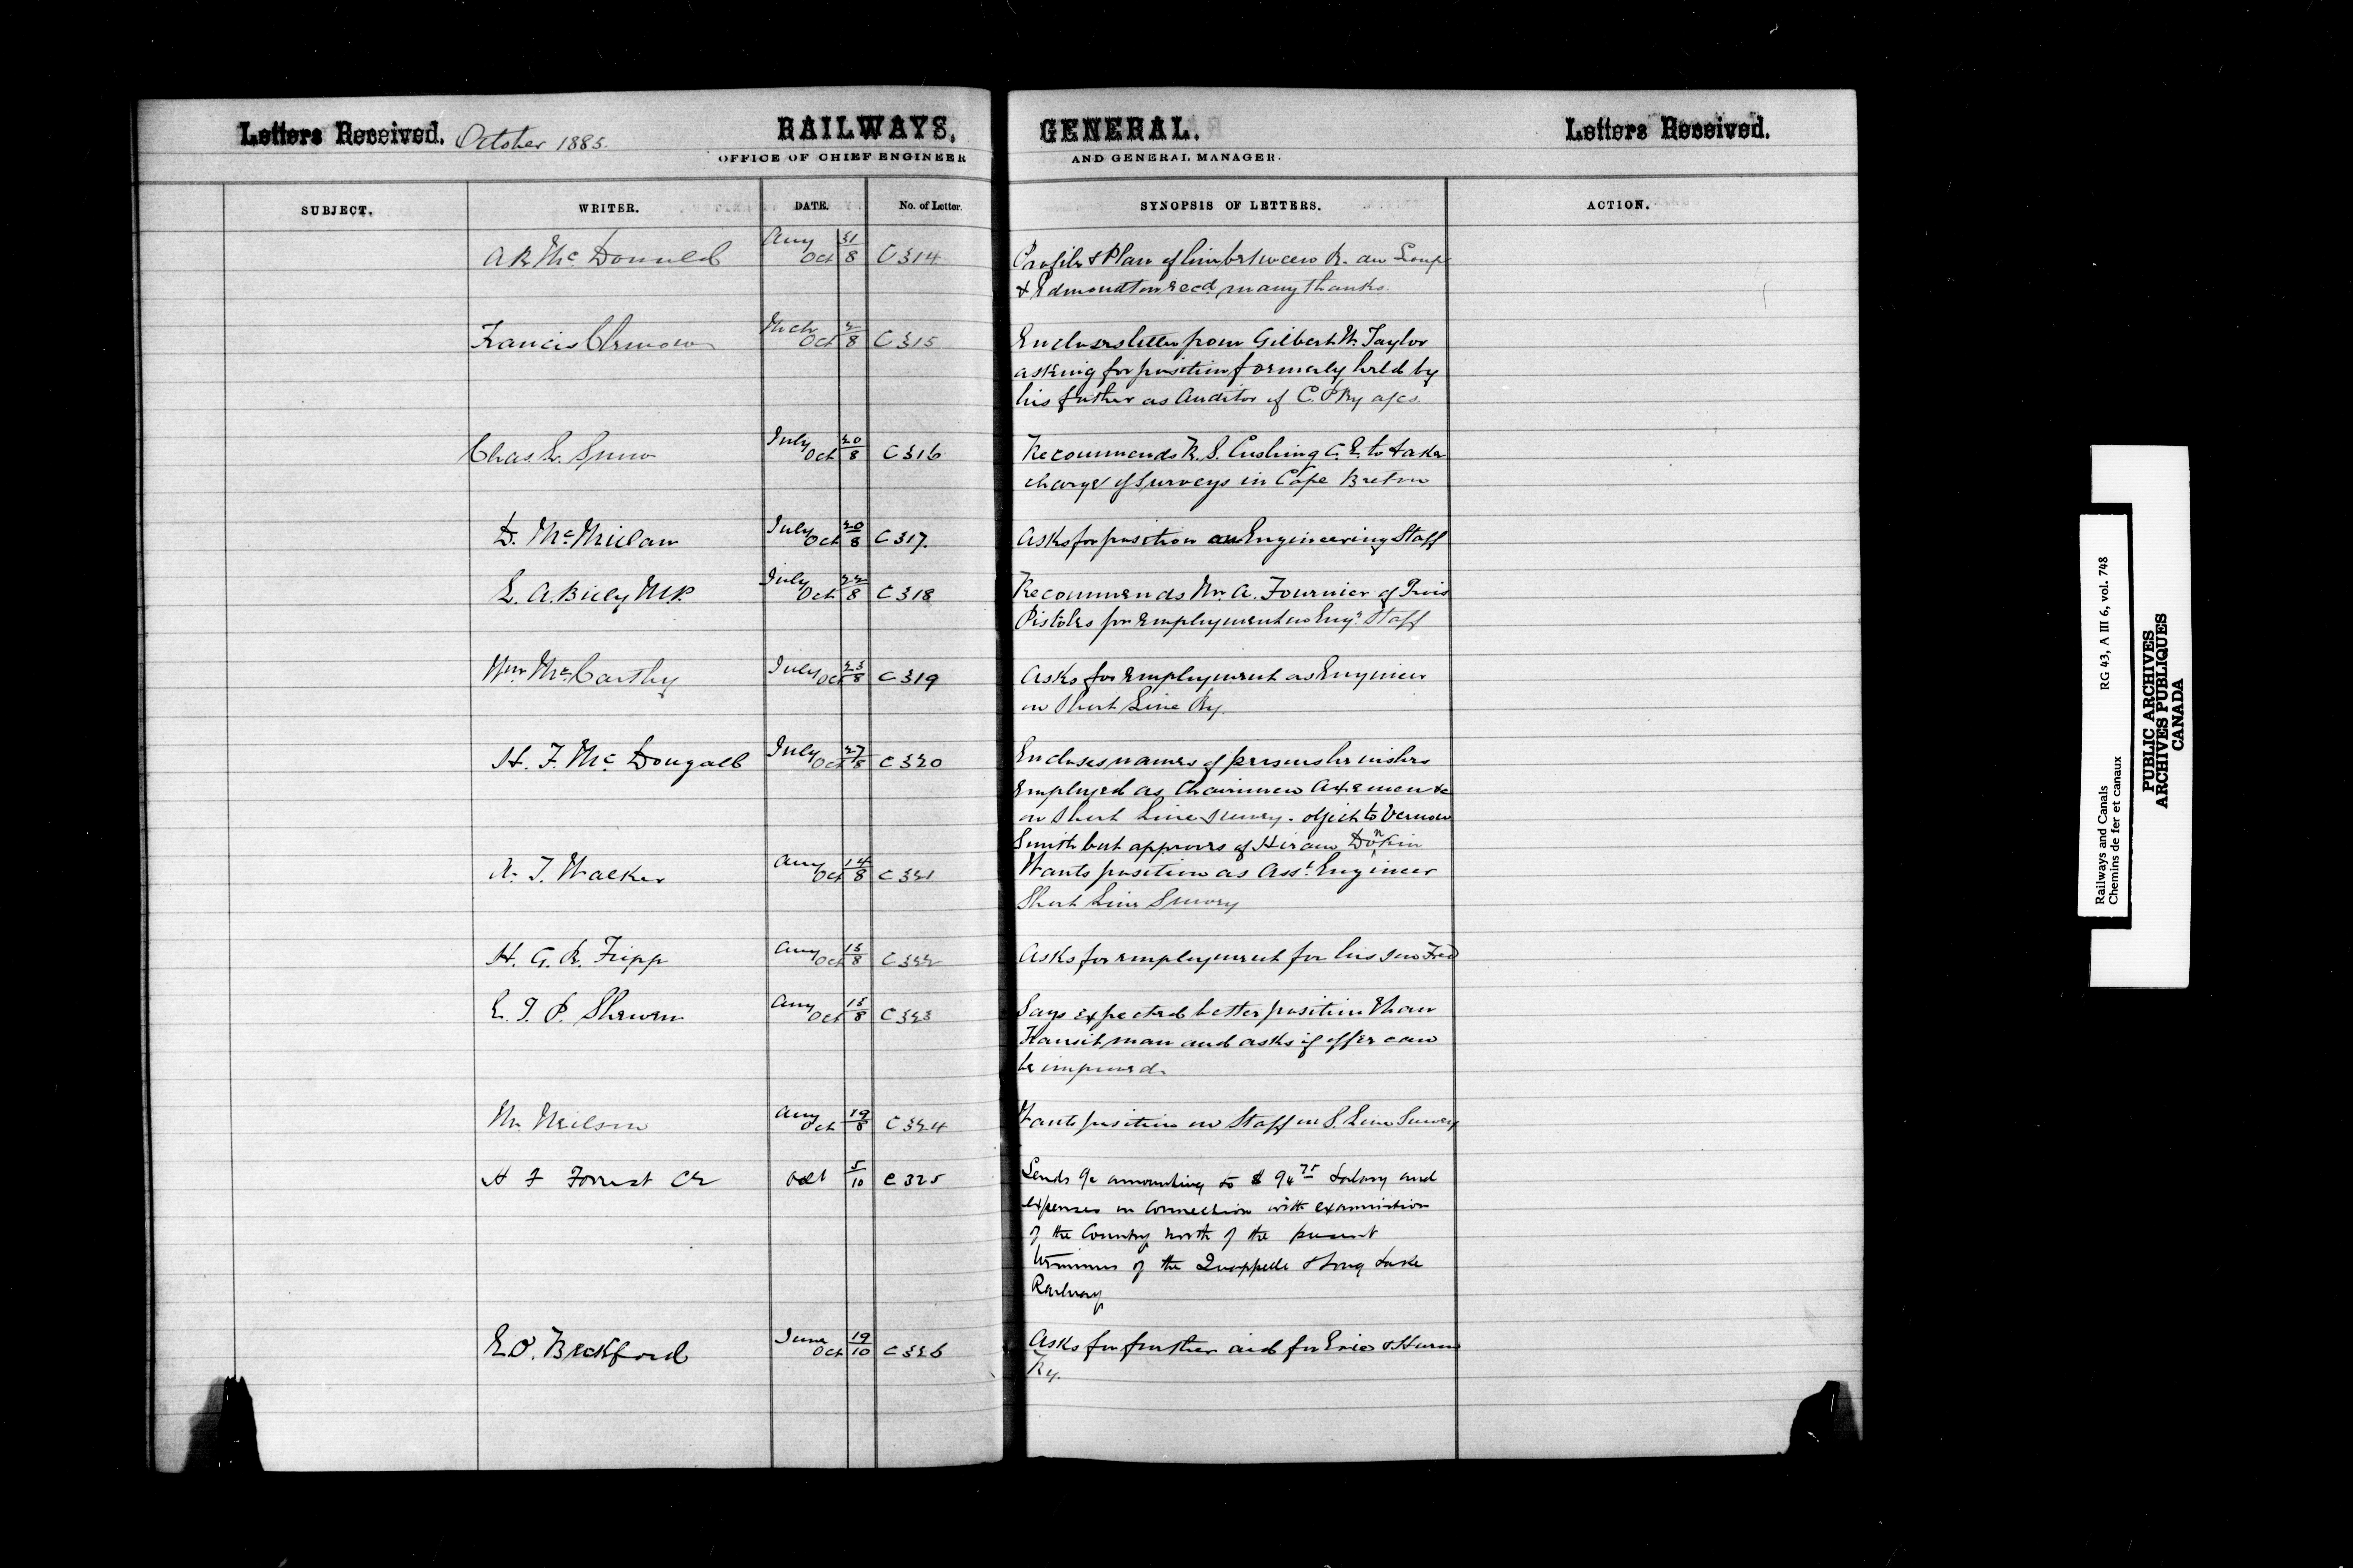 Letters Received. October 1885. RAILWAYS, GENERAL. Letters Received.
OFFICE OF CHIEF ENGINEER AND GENERAL MANAGER.
SUBJECT. WRITER. DATE. No. of Letter. SYNOPSIS OF LETTERS. ACTION.
A R McDonald Aug 31 Oct 8 C314 Profile & Plan of line between R. au Loup
& Edmondton recd many thanks.
Francis Clemow Mch 2 Oct 8 C315 Encloses letter from Gilbert W. Taylor
asking for position formerly held by
his father as Auditor of C. P Ry a/cs.
Chas. L. July 20 Oct 8 C316 Recommends R. S. Cushing C. E. to take
charge of Surveys in Cape Breton
D. McMillan July 20 Oct 8 C317. Asks for position on Engineering Staff
L. A. Billy M.P. July 22 Oct 8 C318 Recommends Mr. A. Fournier of Trois
Pistoles for employment on Engr. Staff
Wm. McCarthy July 23 Oct 8 C319 Asks for employment as Engineer
on Short Line Ry.
H. F. McDougall July 27 Oct 8 C320 Encloses names of persons he wishes
employed as Chainmen Axemen &c
on Short Line Survey. object to Vernon
Smith but approves of Hiram Donkin
T. Walker Aug 14 Oct 8 C321 Wants position as Asst. Engineer
Short Line Survey
H. G. R. Fripp Aug 15 Oct 8 C322 Asks for employment for his son Fred
E. T. P. Shewen Aug 18 Oct 8 C323 Says expected better position than
Transit man and asks if offer can
be improved.
Neilson Aug 19 Oct 8 C324 Wants position on Staff on S. Line Survey
H F Forrest CE Oct 5 10 C325 Sends a/c amounting to $ 94 75 Salary and
expenses in connection with examination
of the Country north of the present
terminus of the Quappelle & Long Lake
Railway
E. O. Bickford June 19 Oct 10 C326 Asks for further aid for Erie & Huron
Ry.
Railways and Canals RG 43, A III 6, vol. 748
Chemins de fer et canaux
PUBLIC ARCHIVES
ARCHIVES PUBLIQUES
CANADA